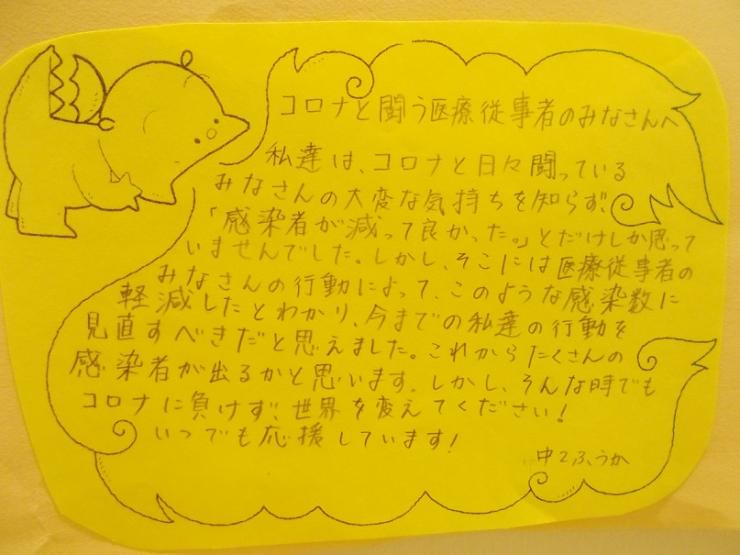 コロナと闘う医療従事者のみなさんへ
私達は、コロナと日々闘っている
みなさんの大変な気持ちを知らず、
「感染者が減って良かった。」とだけしか思って
いませんでした。しかし、そこには医療従事者の
みなさんの行動によって、このような感染数に
軽減したとわかり、今までの私達の行動を
見直すべきだと思えました。これからたくさんの
感染者が出るかと思います。しかし、そんな時でも
コロナに負けず、世界を変えてください!
いつでも応援しています!
中2ふうか